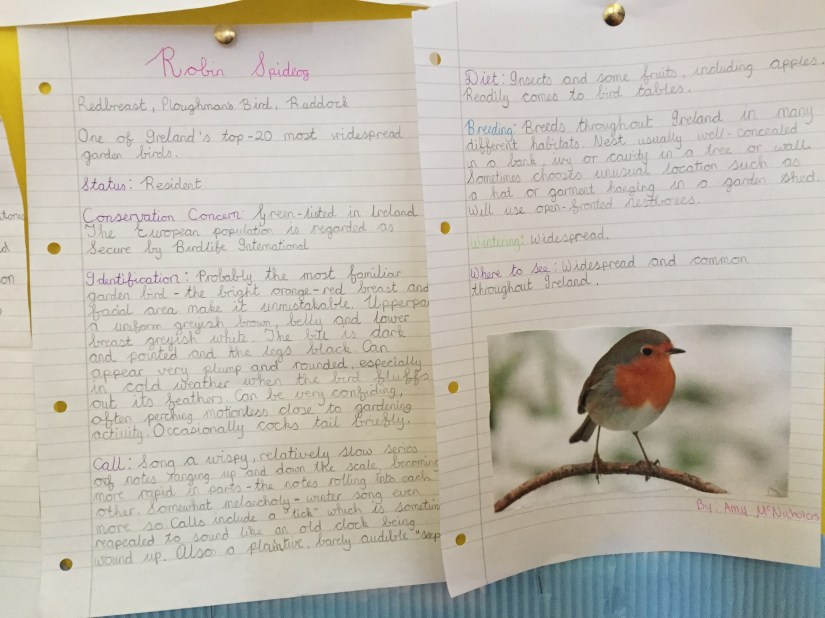 Robin Spideog
Redbreast, Ploughmans Bird, Ruddock
One of Ireland's top-20 most widespread
garden birds.
Status: Resident
Conservation Concern: Green-listed in Ireland
The European population is regarded as
Secure by Birdlife International
Identification: Probably the most familiar
garden bird - the bright orange-red breast and
facial area make it unmistakable. Upperpa
a uniform greyish brown, belly and lower
breast greyish white. The bill is dark
and pointed and the legs black Can
appear very plump and rounded, especially
in cold weather when the bird fluffs
out its feathers. Can be very confiding,
often perching motionless close to gardening
activity. Occasionally cocks tail briefly.
Call: Song a wispy, relatively slow series
of notes ranging up and down the scale, becoming
more rapid in parts - the notes rolling into each
other. Somewhat melancholy - winter song even
more so. Calls include a "tick" which is sometim
reapealed to sound like an old clock being
wound up. Also a plaintive, barely audible "seep
Diet: Insects and some fruits, including apples.
Readily comes to bird tables.
Breeding: Breeds throughout Ireland in many
different habitats. Nest usually well-concealed
in a bank, ivy or cavity in a tree or wall.
Sometimes chooses unusual location such as
a hat or garment hanging in a garden shed.
Will use open-fronted nestboxes.
Wintering: Widespread.
Where to see: Widespread and common
throughout Ireland.
By: Amy McNicholas